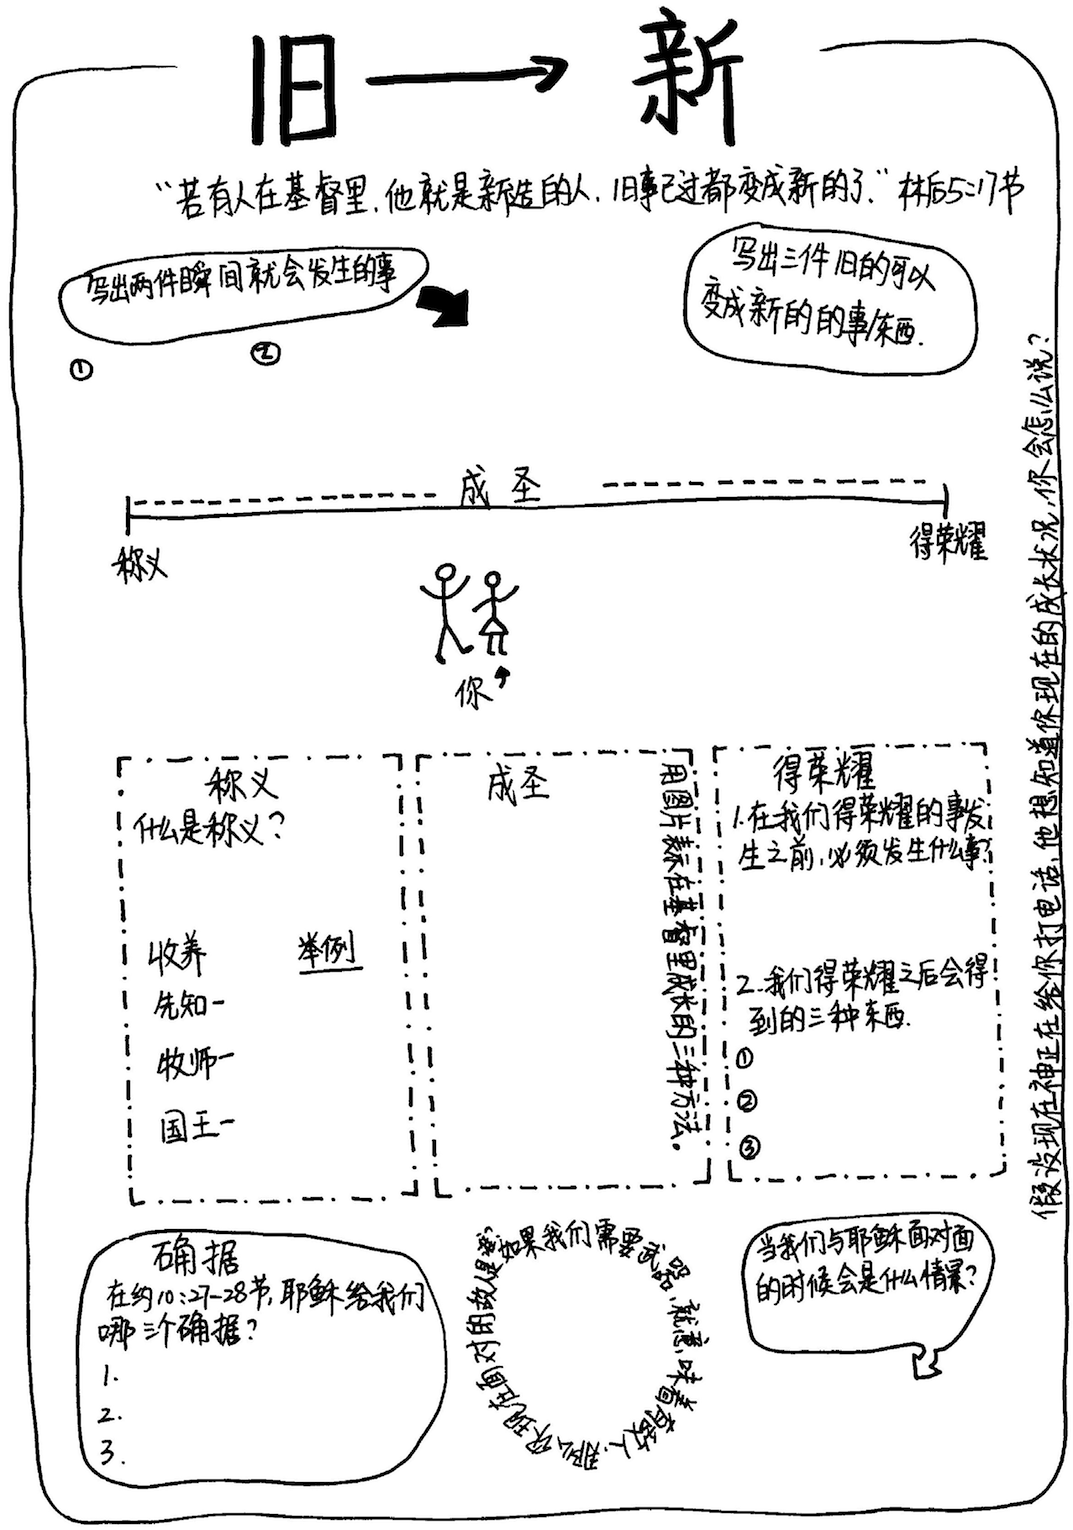 旧→新
“若有人在基督里,他就是新造的人,旧事已过都变成新的了.”林后5:17节
写出两件瞬间就会发生的事
① ②
写出三件旧的可以
变成新的的事/东西.
成圣
称义
得荣耀
你
称义
什么是称义?
收养 举例
先知-
牧师-
国王-
成圣
用图片表示在基督里成长的三种方法。
得荣耀
1.在我们得荣耀的事发
生之前,必须发生什么事?
2.我们得荣耀之后会得
到的三种东西.
①
②
③
假设现在神正在给你打电话,他想知道你现在的成长状况,你会怎么说?
确据
在约10:27-28节,耶稣给我们
哪三个确据?
1.
2.
3.
如果我们需要武器,就意味着有敌人.那么你现在面对的敌人是谁?
当我们与耶稣面对面
的时候会是什么情景?